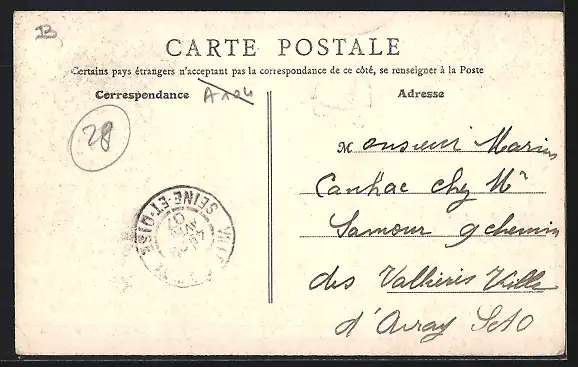 B
CARTE POSTALE
Certains pays étrangers n'acceptant pas la correspondance de ce côté, se renseigner à la Poste
Correspondance
Adresse
28
Monsieur Marius
Canhac chez Mr
Samour 9 chemin
des Vallières Ville
d'Avray S et O
SEINE-ET-OISE
07